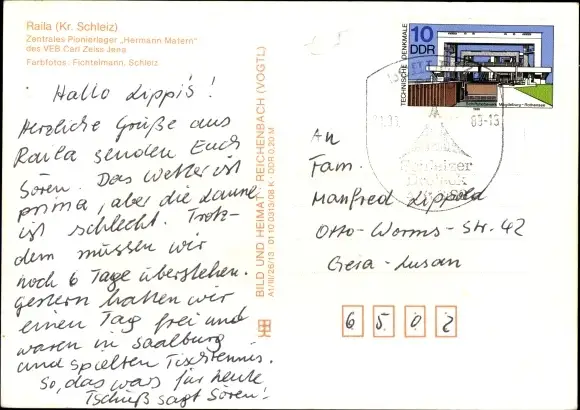 Raila (Kr. Schleiz)
Zentrales Pionierlager „Hermann Matern"
des VEB Carl Zeiss Jena
Farbfotos: Fichtelmann, Schleiz
Hallo Lippi's!
Herzliche Grüße aus
Raila senden Euch
Sören. Das Wetter ist
prima, aber die Laune
ist schlecht. Trotz-
dem müssen wir
noch 6 Tage überstehen.
Gestern hatten wir
einen Tag frei und
waren in Saalburg
und spielten Tischtennis.
So, das wars für heute,
Tschüß sagt Sören!
BILD UND HEIMAT REICHENBACH (VOGTL)
A1/III/26/13 01 10 0313/08 K · DDR 0,20 M
TECHNISCHE DENKMALE
10
DDR
Magdeburg - Rothensee
83-13
Schleizer
Dreieck
An
Fam.
Manfred Lippold
Otto-Worms-Str. 42
Gera-Lusan
6 5 0 2